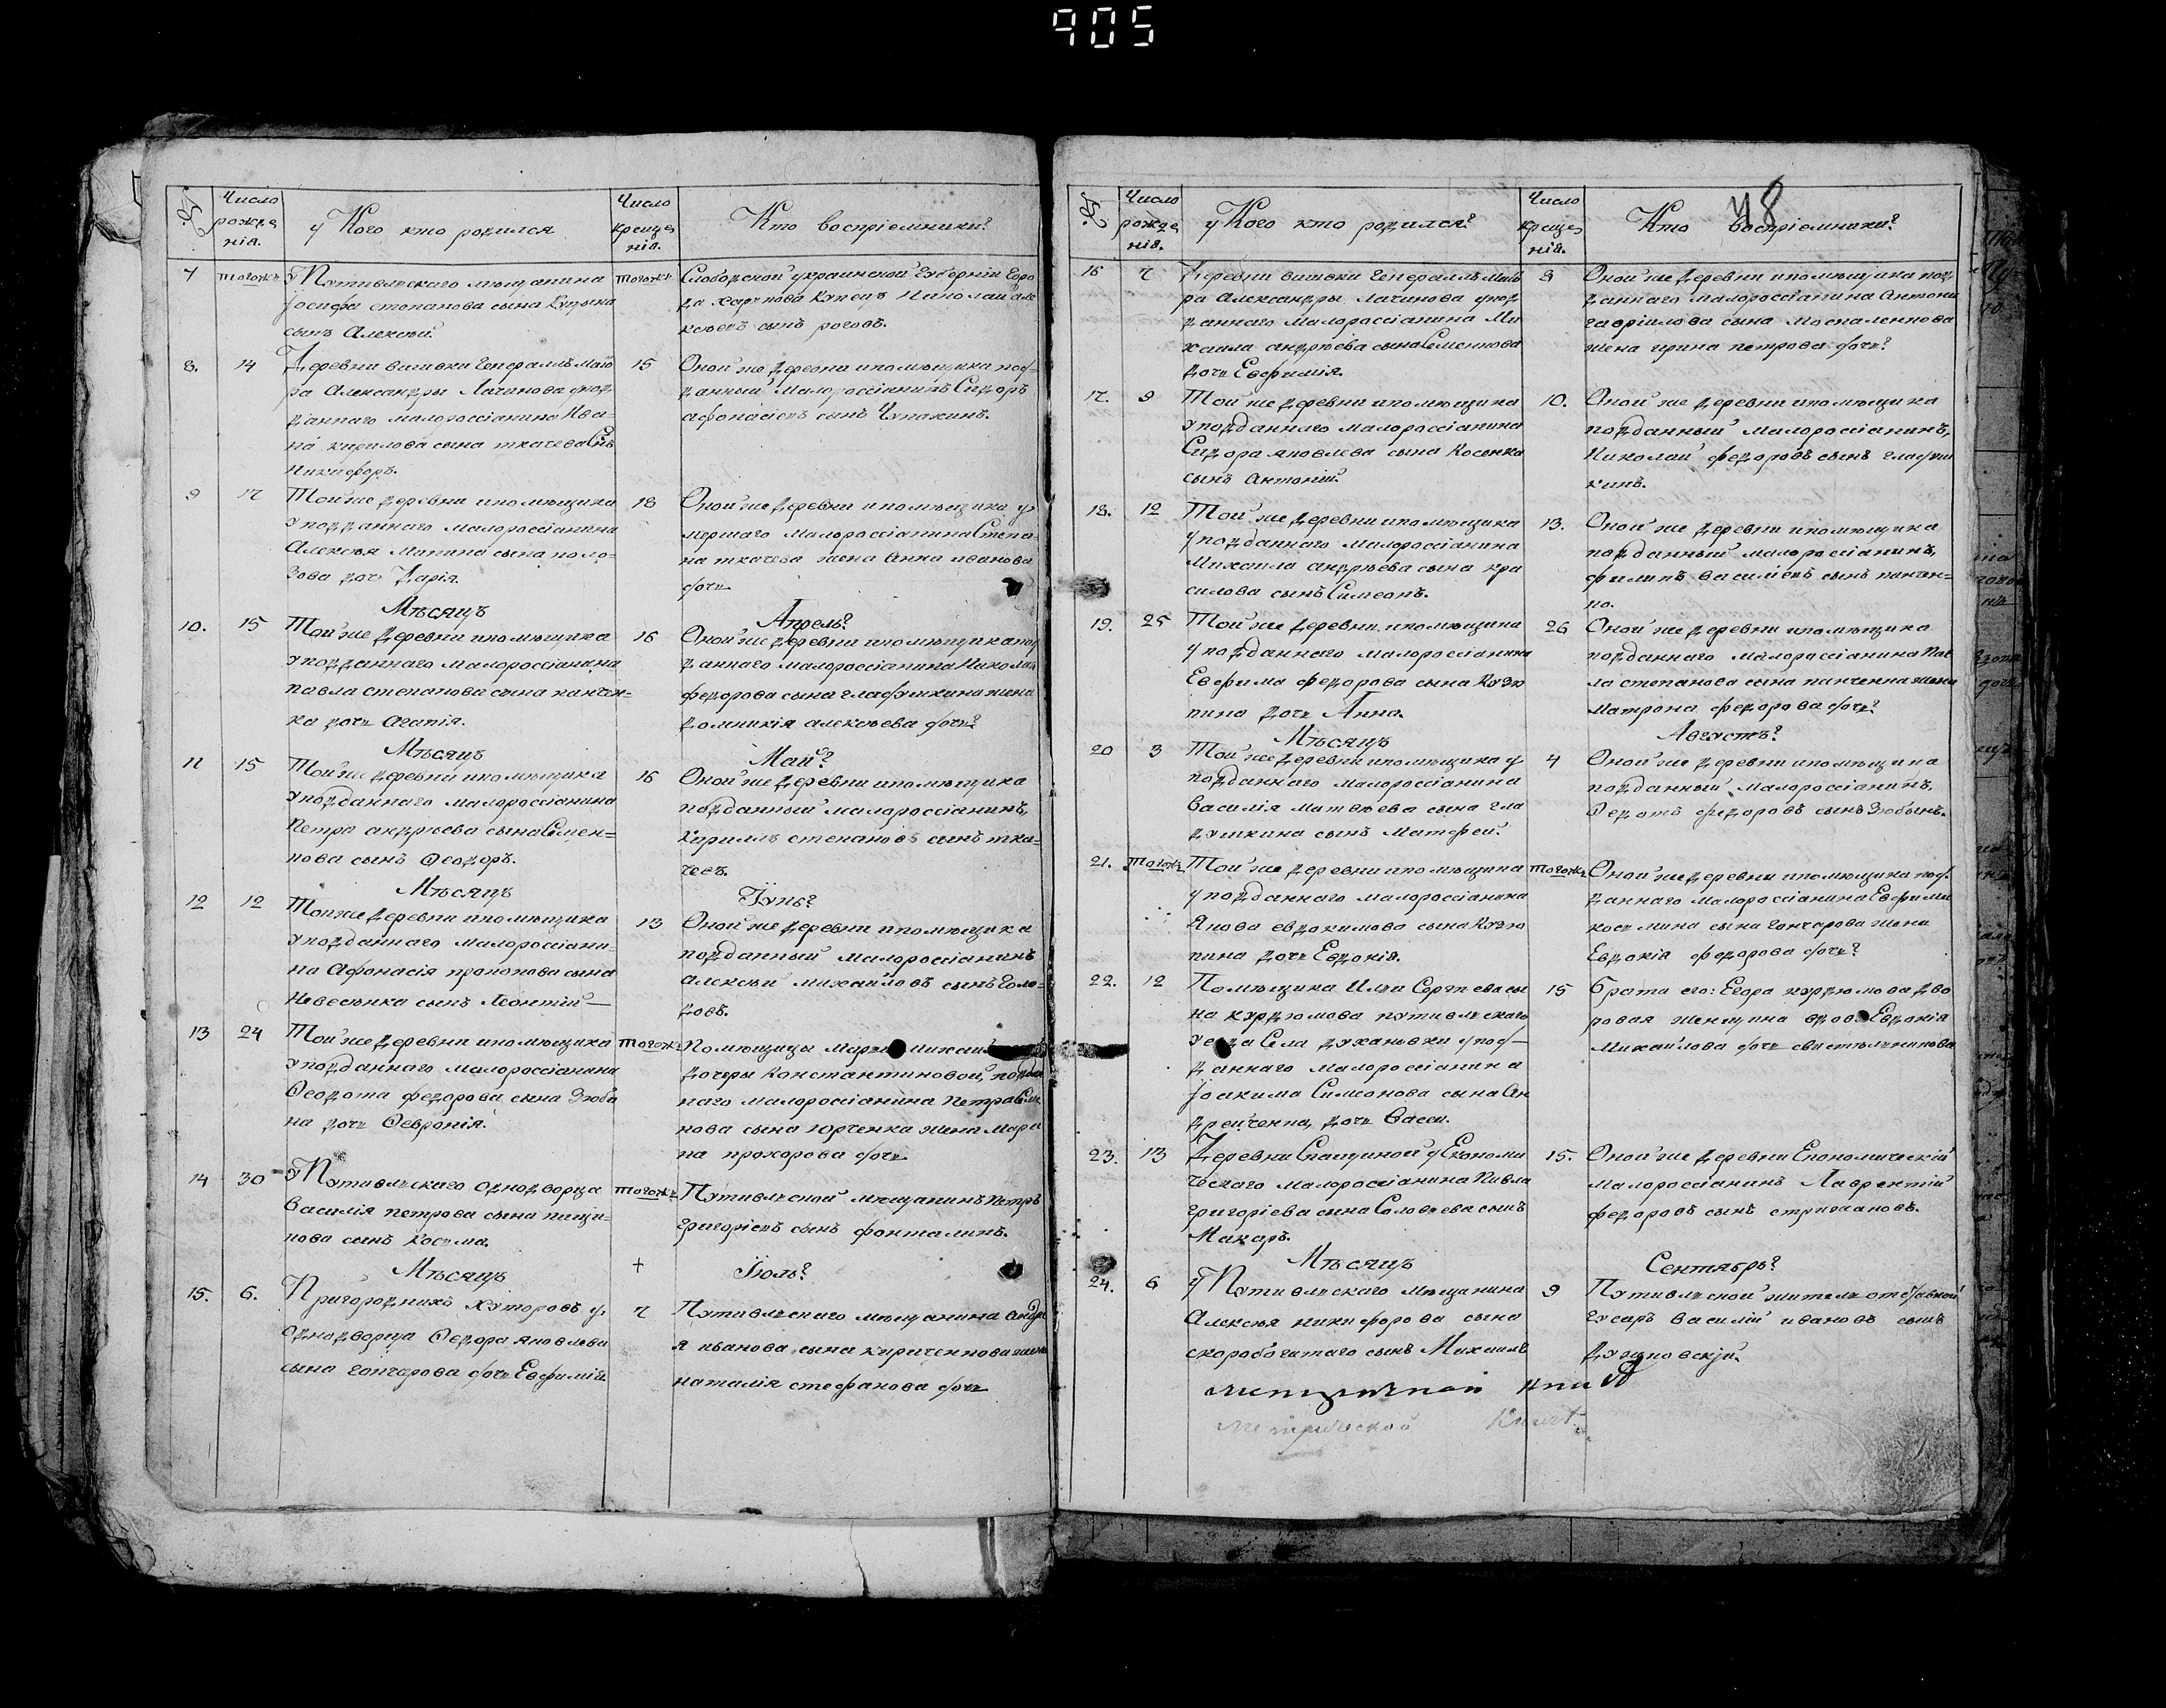 905
48
№
Число рожде нія.
у Кого кто родился
Число креще нія.
Кто воспріемники?
7
тогожъ
У Путивльскаго мѣщанина
Іосифа степанова сына
сынъ Алексѣй.
тогожъ
Слободской украинской Губерніи Горо
да харькова Купецъ Николай але
ксѣевъ сынъ роговъ.
8.
14
Деревни вишвки Генералъ Маіо
ра Александры Лачинова упод
даннаго малороссіянина Ива=
на кирилова сына ткачева Снъ
Никифоръ.
15
Оной же деревни ипомѣщика под=
данный Малороссіянинъ Сидоръ
афонасіевъ сынъ Чупахинъ.
9
17
Той же деревни ипомѣщика
уподданнаго малороссіянина
Алексѣя Мапина сына поло=
зова дочь Дарія.
18
Оной же деревни ипомѣщика у
мершаго Малороссіянина Степа=
на ткачева жена Анна иванова
дочь
Мѣсяцъ
Апрель?
10.
15
Той же деревни ипомѣщика
уподданнаго малороссіянина
павла степанова сына панчен=
ка дочь Агапія.
16
Оной же деревни ипомѣщика под
даннаго малороссіянина Никола
федорова сына глафушкина жена
домникія алексѣева дочь?
Мѣсяцъ
Май?
11
15
Той же деревни ипомѣщика
уподданнаго малороссіянина
Петра андрѣева сына Семен=
кова сынъ Ѳеодоръ.
16
Оной же деревни ипомѣщика
подданный малороссіянинъ,
Кириллъ степановъ сынъ тка=
чевъ.
Мѣсяцъ
Іунь?
12
12
Той же деревни ипомѣщика
уподданнаго малороссіяни=
на Афонасія прокопова сына
Невесѣнка сынъ Леонтій
13
Оной же деревни ипомѣщика
подданный малороссіянинъ
алексѣй михайловъ сынъ Голо=
довъ.
13
24
Той же деревни ипомѣщика
уподданнаго малороссіянина
Ѳеодота федорова сына Зюби
на дочь Ѳевронія.
тогожъ
Помѣщицы
дочеры Константиновой,
наго малороссіянина Петра
нова сына юрченка жена Мари
на прохорова дочь
14
30
У Путивльскаго однодворца
Василія петрова сына пищи=
кова сынъ Косъма.
тогожъ
Путивльской мѣщанинъ Петръ
григоріевъ сынъ фонталинъ.
Мѣсяцъ
+
Іюль?
15.
6.
Пригороднихъ Хуторовъ у,
однодворца Ѳедора яковлева
сына гончарова дочь Евфимія
7
Путивльскаго мѣщанина андре
я иванова сына кириченкова жена
наталія стефанова дочь
№
Число рожде нія.
у Кого кто родился?
Число креще нія.
Кто воспріемники?
16
7
Деревни вишвки Генералъ Маіо
ра Александры Лачинова упод
даннаго Малороссіянина Ми
хаила андрѣева сына Семенкова
дочь Евфимія.
8
Оной же деревни ипомѣщика под
даннаго малороссіянина Антони
гавріилова сына москаленкова
жена ирина петрова дочь?
17.
9
Той же деревни ипомѣщика
уподданнаго малороссіянина
Сидора яковлева сына Косенка
сынъ Антоній.
10.
Оной же деревни ипомѣщика
подданный малороссіянинъ,
Николай федоровъ сынъ глафуш
кинъ.
18.
12
Той же деревни ипомѣщика
уподданнаго малороссіянина
Михаила андрѣева сына кра
силова сынъ Симеонъ.
13.
Оной же деревни ипомѣщика
подданный малороссіянинъ,
филипъ василіевъ сынъ панчен=
ко.
19.
25
Той же деревни ипомѣщика
уподданнаго малороссіянина
Евфима федорова сына Кузю
пина дочь Анна.
26
Оной же деревни ипомѣщика
подданнаго малороссіянина Пав
ла степанова сына панченка жена
Матрона федорова дочь?
Мѣсяцъ
Августъ?
20
3
Той же деревни ипомѣщика у
подданнаго малороссіянина
василія матвѣева сына гла
душкина сынъ Матфей.
4
Оной же деревни ипомѣщика
подданный малороссіянинъ,
Ѳедотъ федоровъ сынъ Зюбинъ.
21.
тогожъ
Той же деревни ипомѣщика
уподданнаго малороссіянина
Якова евдокимова сына Кузю
пина дочь Евдокія.
тогожъ
Оной же деревни ипомѣщика под
даннаго малороссіянина Евфима
косьмина сына Гончарова жена
Евдокія федорова дочь?
22.
12
Помѣщика Ильи Сергѣева сы
на курдюмова путивльскаго
уезда Села духановки упод=
даннаго малороссіянина
Іоакима Симеонова сына Ан
дрейченка, дочь Васса.
15
брата его: Егора курдюмова дво
ровая женщина вдова Евдокія
Михаилова дочь свистельникова
23.
13
Деревни Спащиной у Економи
ческаго малороссіянина Павла
григоріева сына Соловьева сынъ
Макаръ.
15.
Оной же деревни Економическій
малороссіянинъ Лаврентій
федоровъ сынъ стрижановъ.
Мѣсяцъ
Сентябрь?
24.
6
У Путивльскаго мѣщанина
Алексѣя никифорова сына
скоробогатаго сынъ Михаилъ
9
Путивльской житель отставной
гусаръ василій ивановъ сынъ
Духновскій.
метрической